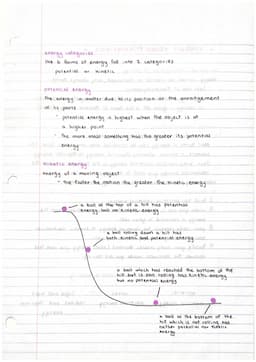 energy categories
the 6 forms of energy fall into 2 categories
potential or kinetic
potential energy
the energy in matter due to its position or the arrangement
of its parts
· potential energy is highest when the object is at
a higher point
· the more mass something has the greater its potential
energy
kinetic energy
energy of a moving object
· the faster the motion the greater the kinetic energy
a ball at the top of a hill has potential
energy but no kinetic energy
a ball rolling down a hill has
both kinetic and potential energy
a ball which has reached the bottom of the
hill but is still rolling has kinetic energy
but no potential energy
a ball at the bottom of the
hill which is not rolling has
neither potential nor kinetic
energy